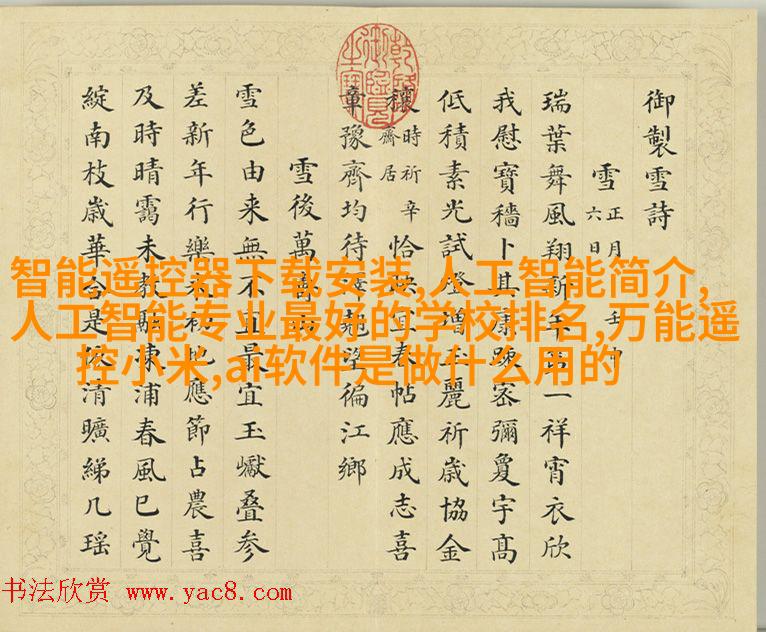 御製雪詩
雪 正月六日
瑞葉舞風翔新年一祥宵衣欣
我慰寶穡卜其康疎密彌敻宇高
低積素光試燈增麗祈歲協金
穰 時祈辛齋居 恰宜春帖應成志喜
章豫齋均待望徧江鄉
雪後萬壽
雪色由来無不宜最宜玉巘叠参
差新年行樂初地應節占農喜
及時晴靄未教融凍浦春風已覺
綻南枝歲華合是清曠綈几瑶
智能遥控器下载安装,人工智能简介,
人工智能专业最好的学校排名,万能遥
控小米,ai软件是做什么用的
书法欣赏 www.yac8.com